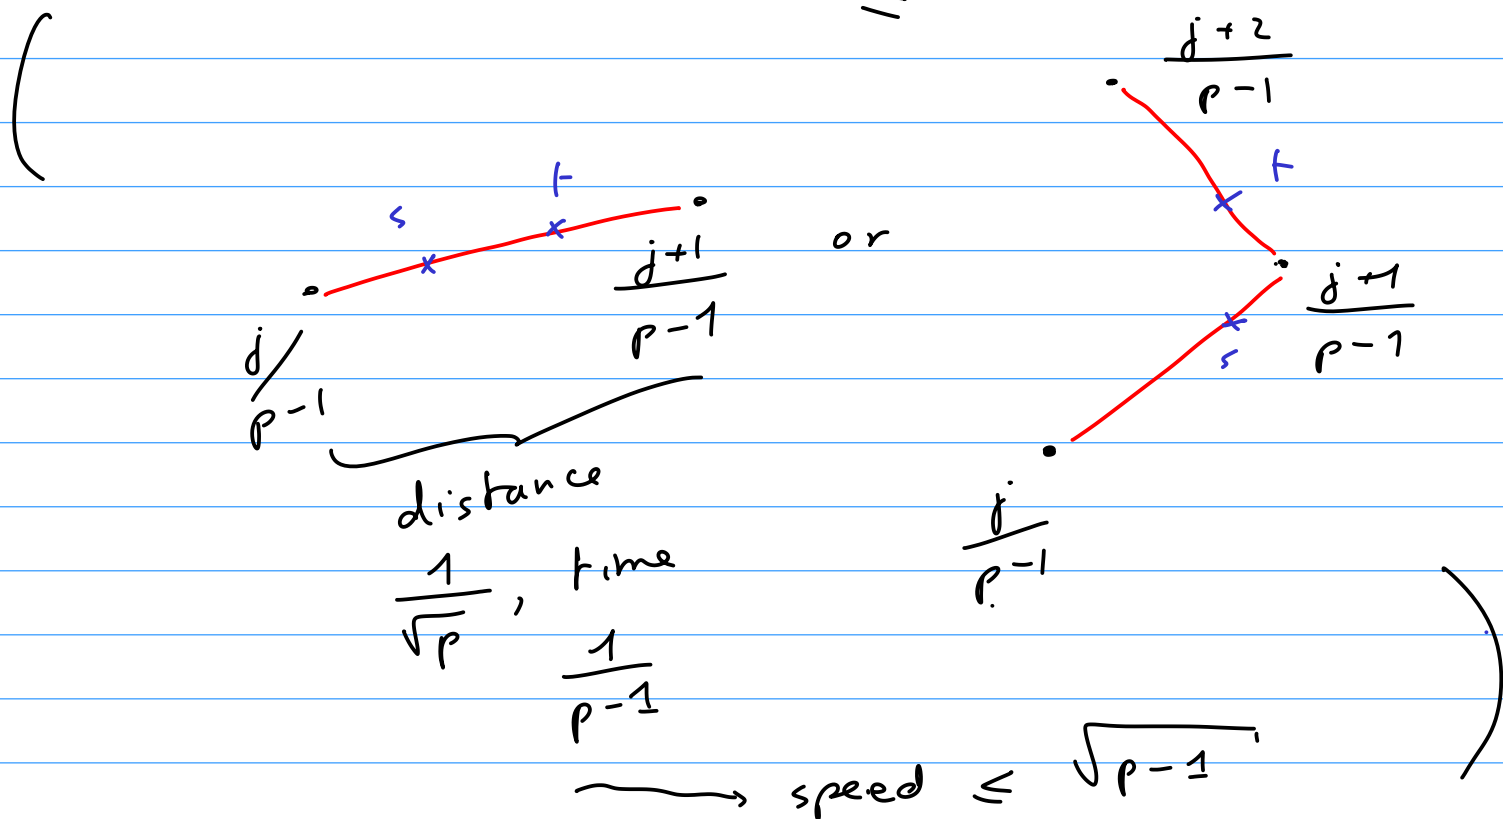 (
j+2
p-1
s t
j/p-1
j+1
p-1
or
t
j+1
p-1
s
j
p-1
distance
1/√p , time
1
p-1
⟶ speed ≤ √p-1
)